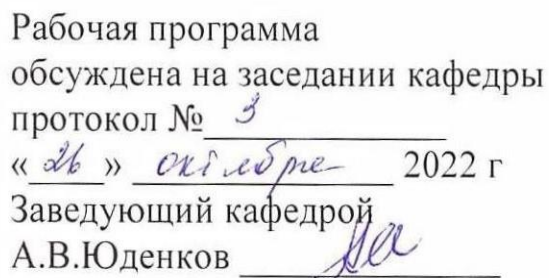 Рабочая программа
обсуждена на заседании кафедры
протокол № 3
«26» октября 2022 г
Заведующий кафедрой
А.В.Юденков